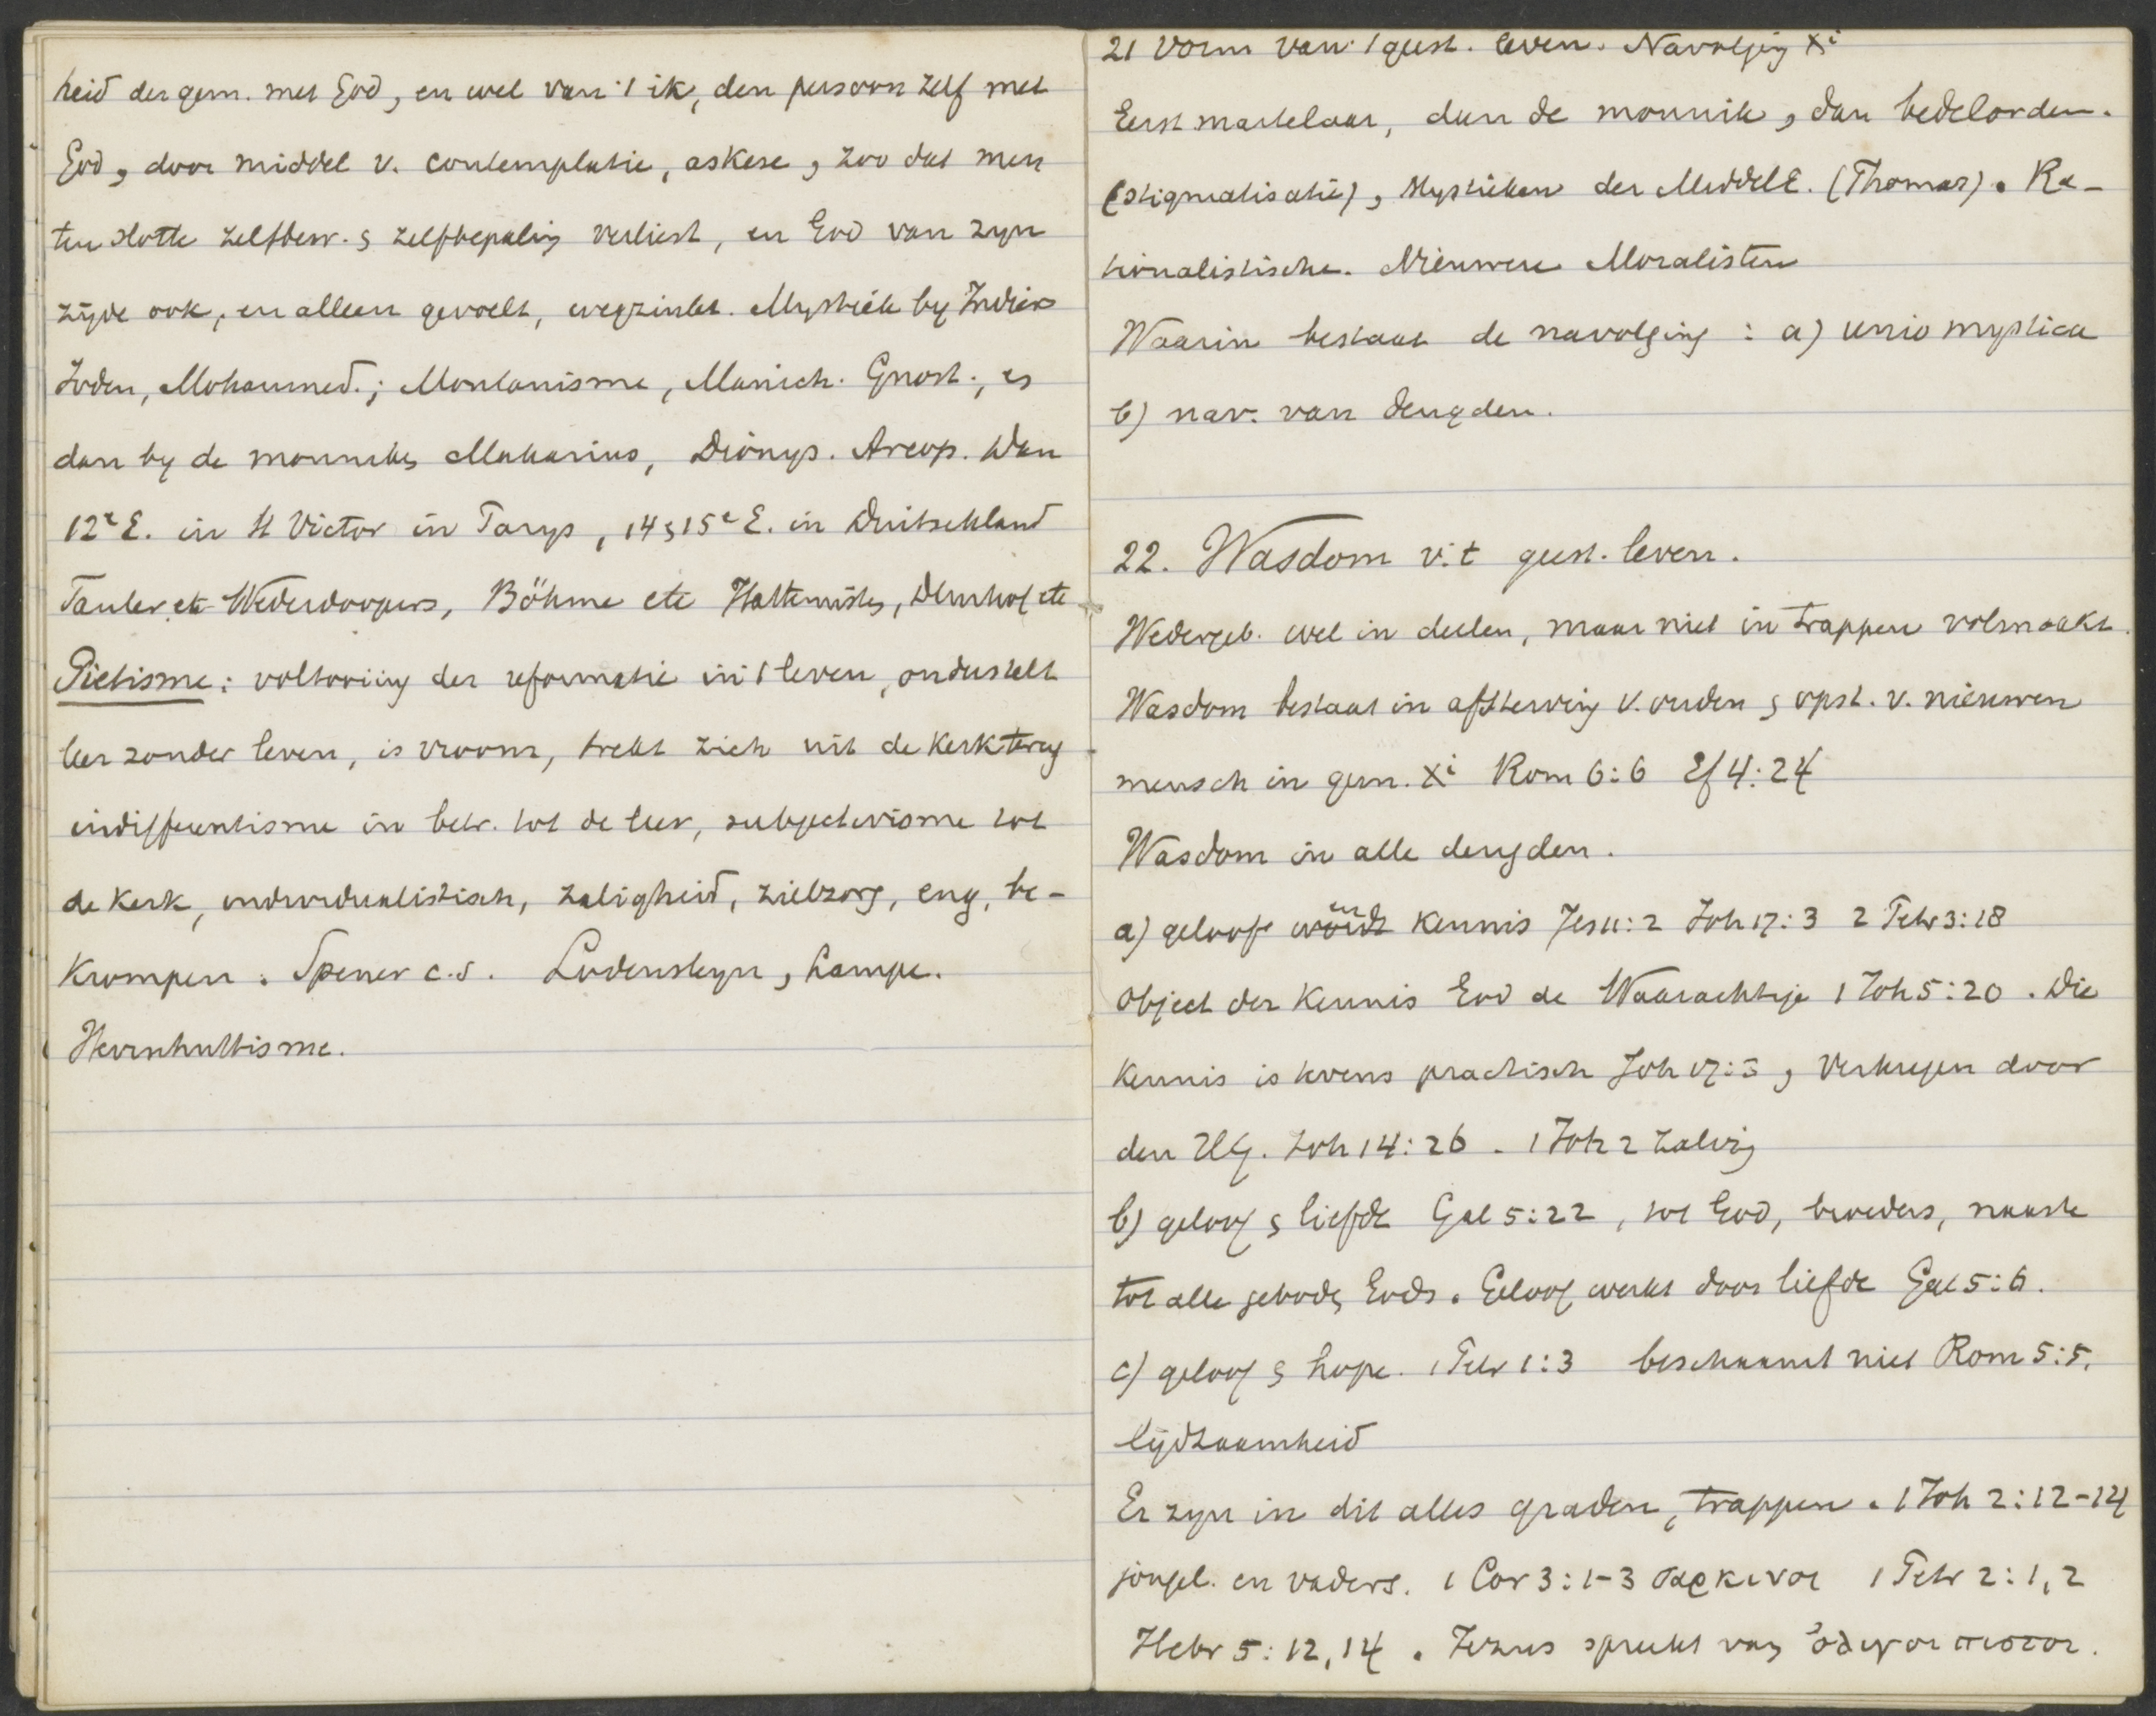 heid der gem. met God, en wel van 't ik, den persoon zelf met
God, door middel v. contemplatie, askese, zoo dat men
ten slotte zelfbew. & zelfbepaling verliest, en God van zyn
zijde ook, en alleen gevoelt, wegzinkt. Mystiek by Indiers
Joden, Mohammed.; Montanisme, Manich. Gnost., es
dan by de monniken Makarius, Dionys. Areop. Dan
12e E. in St Victor in Parys, 14 & 15e E. in Duitschland
Tauler etc Wederdoopers, Böhme etc Hattemisten, Deurhof etc
Pietisme: voltooiing der reformatie in 't leven, onderstelt
leer zonder leven, is vroom, trekt zich uit de kerk terug
indifferentisme in betr. tot de leer, subjectivisme tot
de kerk, individualistisch, zaligheid, zielzorg, eng, be-
krompen. Spener c.s. Lodensteyn, Lampe.
Herrnhuttisme.
21 Vorm van 't geest. leven. Navolging Xi
Eerst martelaar, dan de monnik, dan bedelorden.
(stigmatisatie), Mystieken der MiddelE. (Thomas). Ra-
tionalistische. Nieuwere Moralisten
Waarin bestaat de navolging: a) unio mystica
b) nav. van deugden.
22. Wasdom v. t geest. leven.
Wedergeb. wel in deelen, maar niet in trappen volmaakt.
Wasdom bestaat in afsterving v. ouden & opst. v. nieuwen
mensch in gem. Xi Rom 6:6 Ef 4:24
Wasdom in alle deugden.
a) geloof en kennis Jes 11:2 Joh 17:3 2 Petr 3:18
Object der kennis God de Waarachtige 1 Joh 5:20. Die
kennis is tevens practisch Joh 17:3, Verkregen door
den HG. Joh 14:26. 1 Joh 2 zalving
b) geloof & liefde Gal 5:22, tot God, broeders, naaste
tot alle geboden Gods. Geloof werkt door liefde Gal 5:6.
c) geloof & hope. 1 Petr 1:3 beschaamt niet Rom 5:5.
lijdzaamheid
Er zyn in dit alles graden, trappen. 1 Joh 2:12-14
jongel. en vaders. 1 Cor 3:1-3 σαρκινοι 1 Petr 2:1,2
Hebr 5:12,14. Jezus spreekt van ὀλιγοπιστοι.